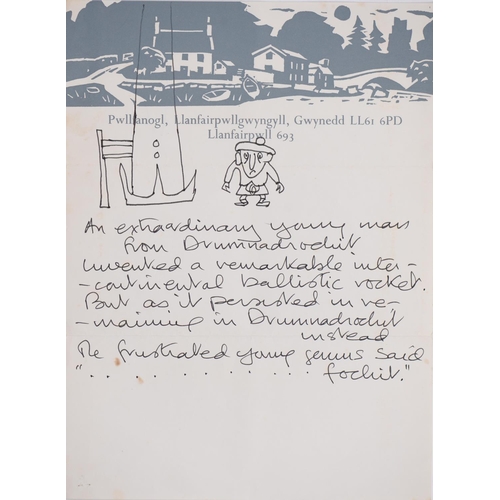 Pwllfanogl, Llanfairpwllgwyngyll, Gwynedd LL61 6PD
Llanfairpwll 693
An extraordinary young man
from Drumnadrochit
invented a remarkable inter-
-continental ballistic rocket.
But as it persisted in re-
-maining in Drumnadrochit
instead
The frustrated young genius said
". . . . . . . . . . . . fochit."